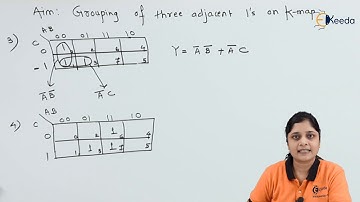 Aim: Grouping of three adjacent 1's on K-map
Ekeeda
3)
AB
C 00 01 11 10
0 1 0 2 6 4
1 1 1 1 3 7 5
Y = A̅ B̅ + A̅ C
A̅ B̅ A̅ C
4)
AB
C 00 01 11 10
0 0 2 1 6 4
1 1 1 3 1 7 5